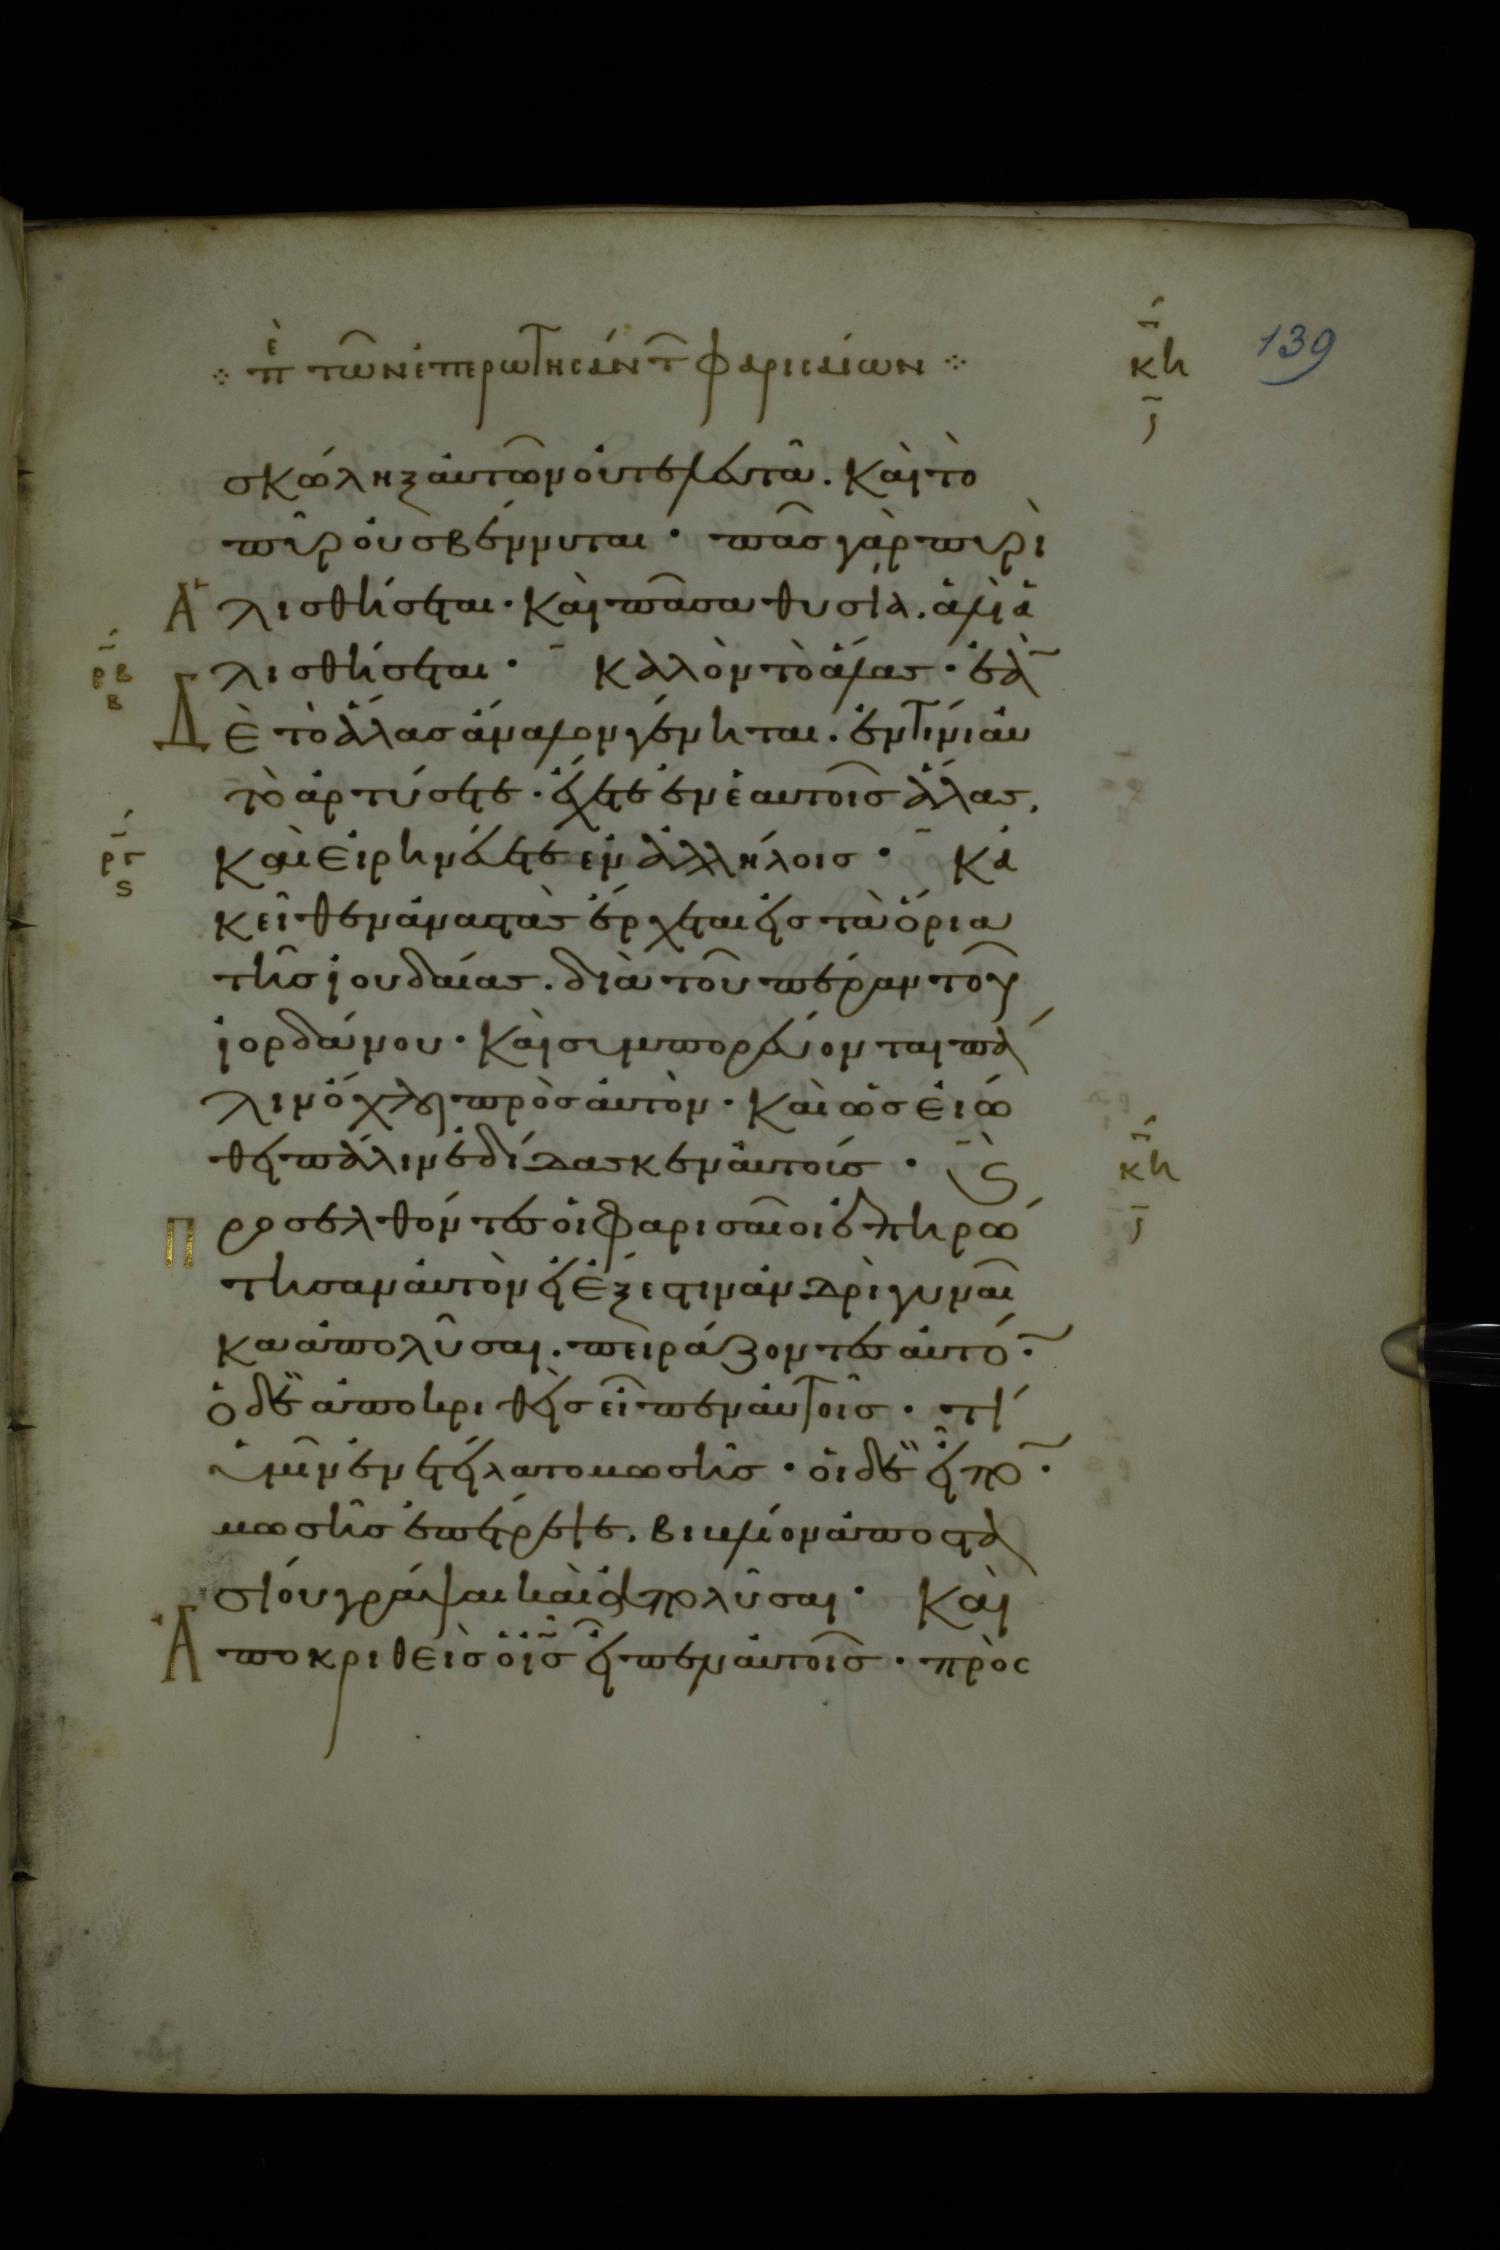 κη
139
ϛ
πε τῶν ἐπερωτησάντ φαρισαίων
σκώληξ ἀυτῶν ὀυ τελευτᾶ. καὶ τὸ
πῦρ ὀυ σβέννυται · πᾶς γὰρ πυρὶ
ἁλισθήσεται · καὶ πᾶσα θυσία. ἁλὶ ἁ
λισθήσεται · καλὸν τὸ ἅλας · ἐὰ
δὲ τὸ ἅλας ἄναλον γένηται. ἐν τίνι ἀυ
τὸ ἀρτύσετε · ἔχετε ἐν ἑαυτοῖς ἅλας,
καὶ εἰρηνεύετε ἐν ἀλλήλοις · κἀ
κεῖθεν ἀναστὰς ἔρχεται εἰς τὰ ὅρια
τῆς ἰουδαίας. διὰ τοῦ πέραν τοῦ
ἰορδάνου · καὶ συμπορεύονται πά
λιν ὄχλοι πρὸς ἀυτὸν · καὶ ὡς εἰώ
θει πάλιν ἐδίδασκεν ἀυτοίς · ϛ
προσελθόντες οἱ φαρισαῖοι ἐπηρώ
τησαν ἀυτὸν εἰ ἔξεστιν ἀνδρὶ γυναῖ
κα ἀπολῦσαι. πειράζοντες ἀυτό ·
ὁ δὲ ἀποκριθεὶς εἶπεν ἀυτοῖς · τί
ὑμῖν ἐνετείλατο μωσῆς · οἱ δὲ εἶπο ·
μωσῆς ἐπέτρεψε. βιβλίον ἀποστα
σίου γράψαι καὶ ἀπολῦσαι · καὶ
ἀποκριθεὶς ὁ ἰς εἶπεν ἀυτοῖς · πρὸς
ρβ
β
ρ
ϛ
κη